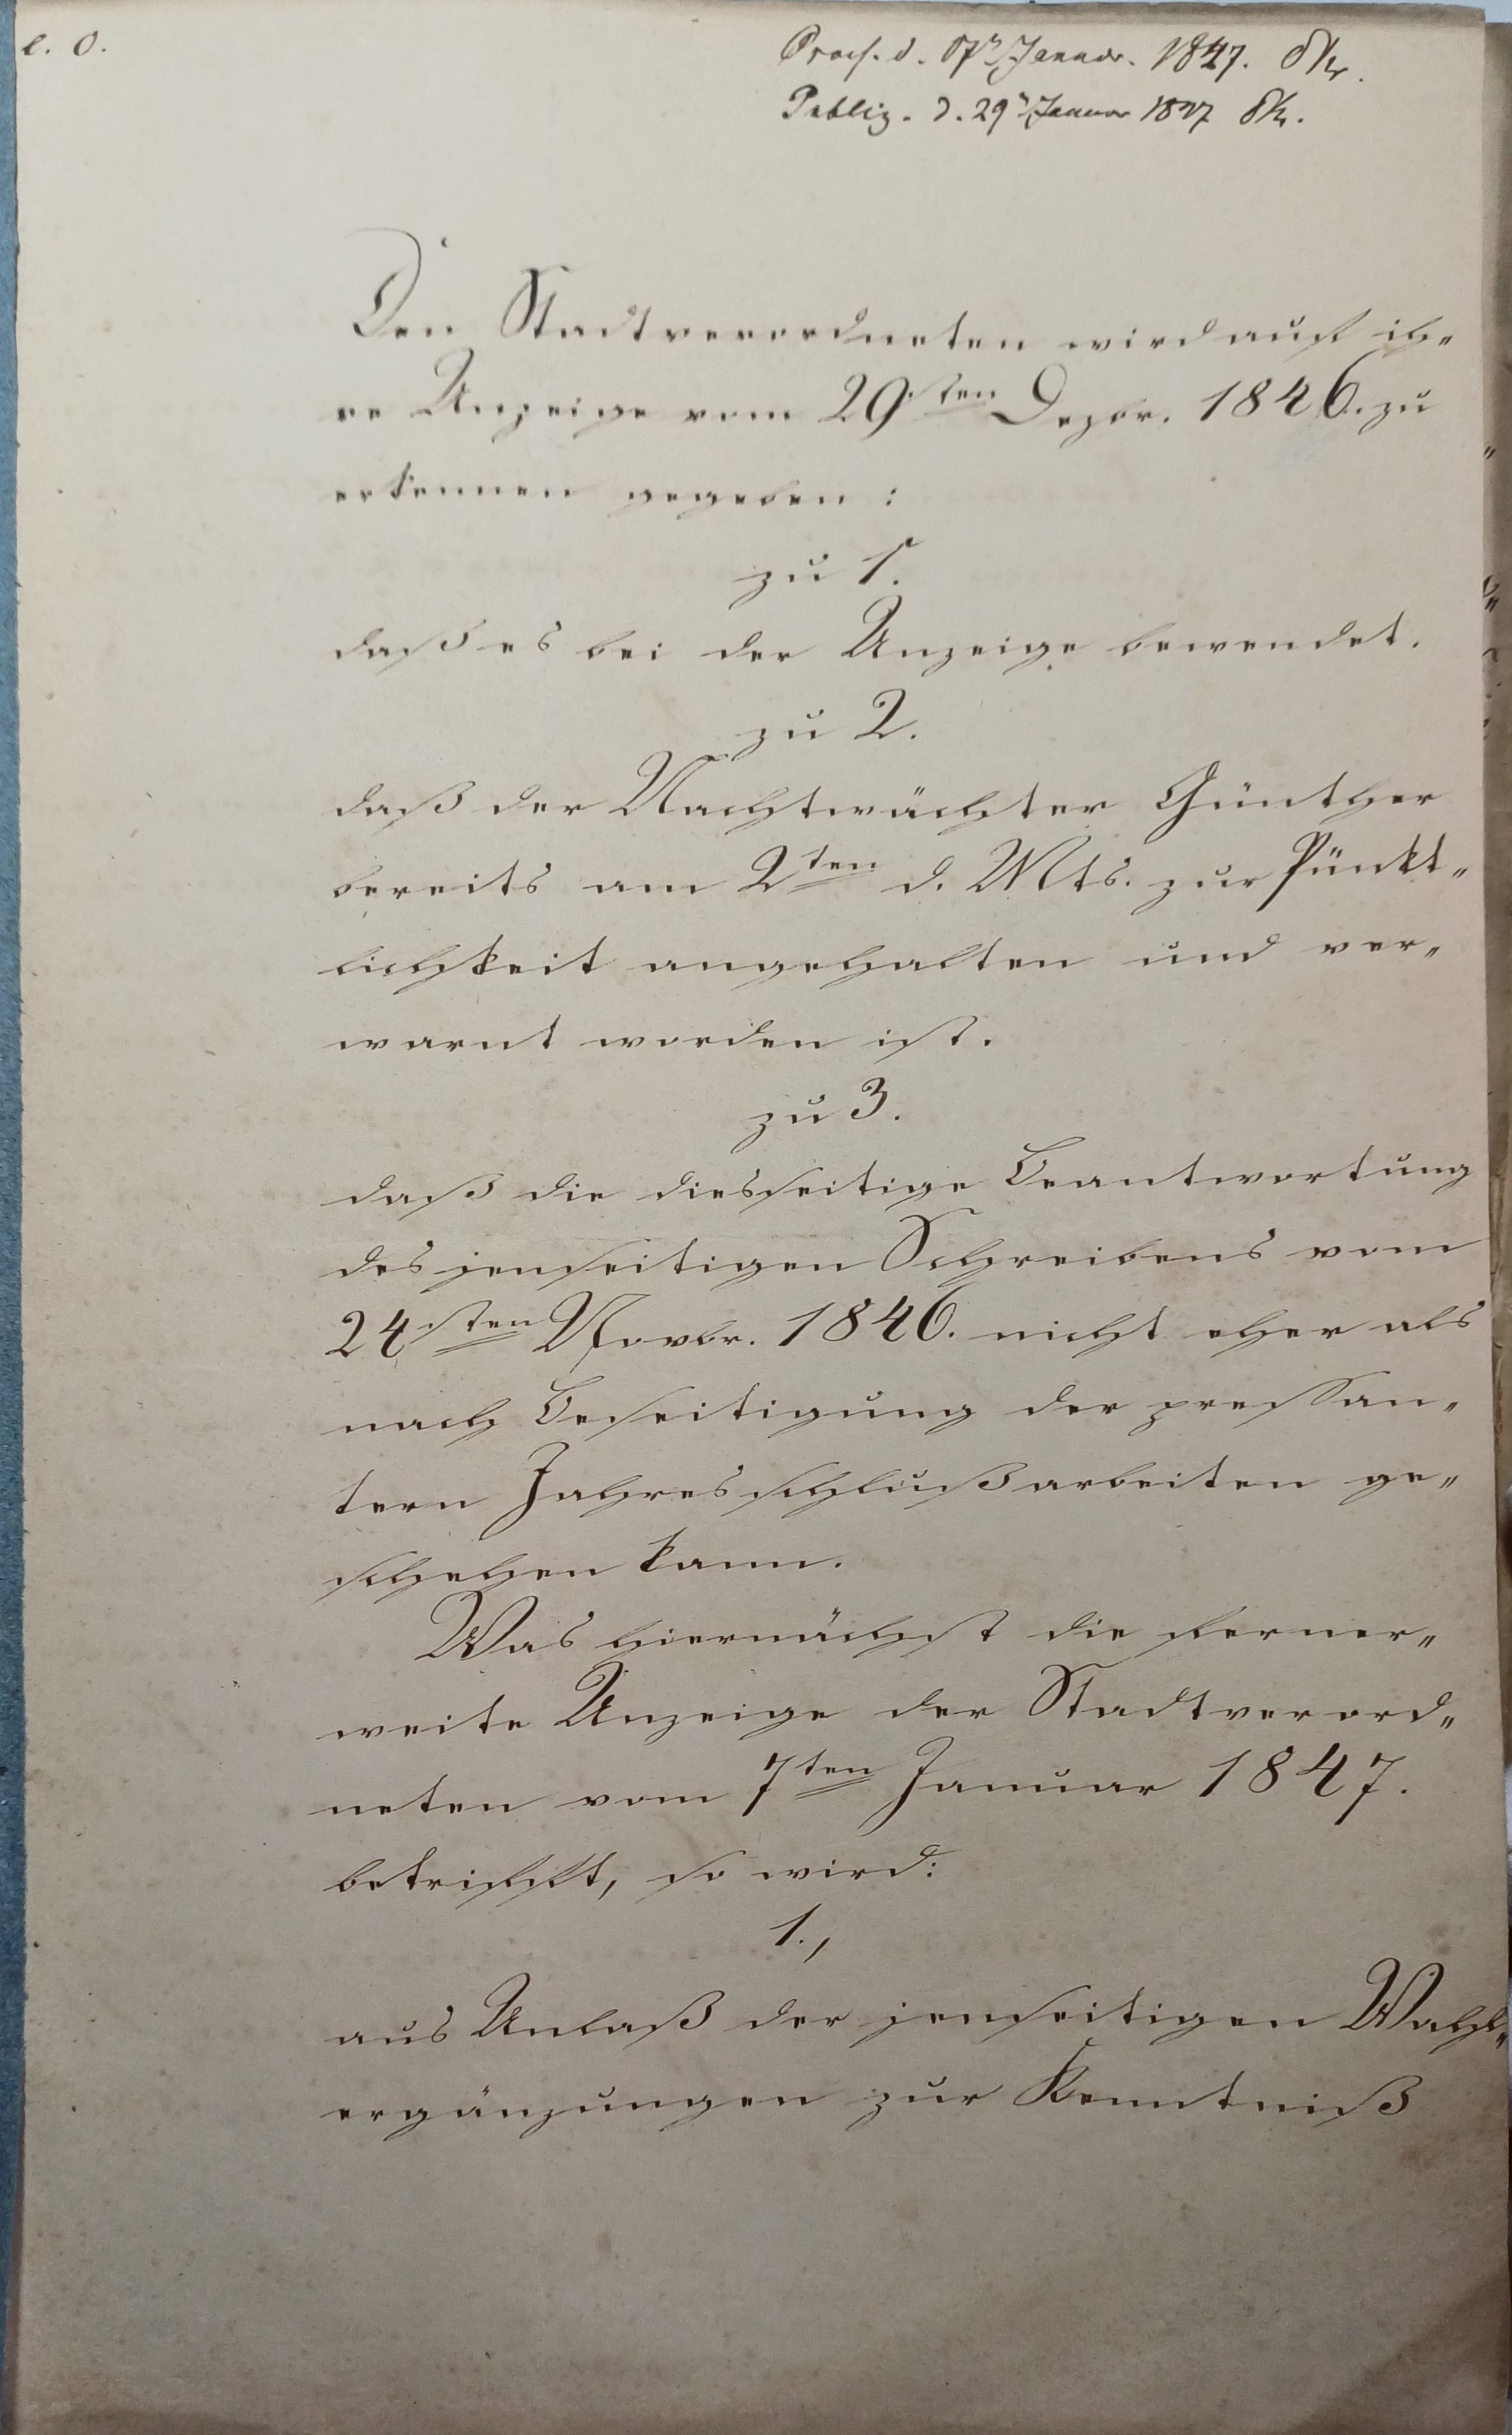 e. o.
Praes. d. Januar. 1847.
Publiz. d. 29n Januar 1847
Den Stadtverordneten wird auf ih„
re Anzeige vom 29sten Dezbr. 1846. zu
erkennen gegeben:
zu 1.
daß es bei der Anzeige bewendet.
zu 2.
daß der Nachtwächter Günther
bereits am 2ten d. Mts. zur Pünkt„
lichkeit angehalten und ver„
warnt worden ist.
zu 3.
daß die diesseitige Beantwortung
des jenseitigen Schreibens vom
24sten Novbr. 1846. nicht eher als
nach Beseitigung der pressan„
tern Jahresschlußarbeiten ge„
schehen kann.
Was hiernächst die ferner„
weite Anzeige der Stadtverord„
neten vom 7ten Januar 1847.
betrifft, so wird:
1.,
aus Anlaß der jenseitigen Wahl„
ergänzungen zur Kenntniß